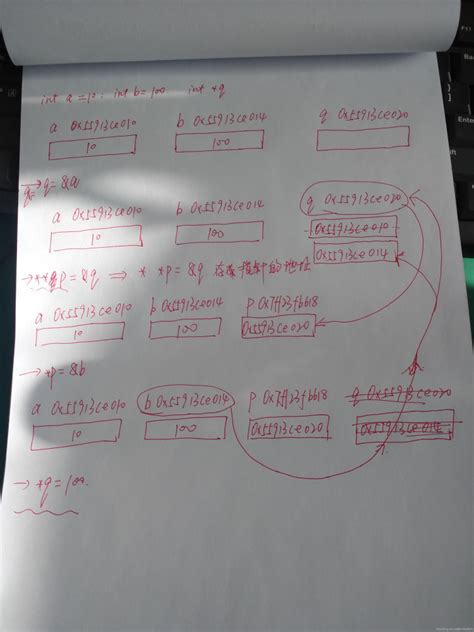 int a=10; int b=100 int *q
a 0x55913ce010 b 0x55913ce014 q 0x55913ce020
10 100
→ q=&a
a 0x55913ce010 b 0x55913ce014 q 0x55913ce020
10 100 0x55913ce010
0x55913ce014
→ **p=&q ⇒ * *p=&q 存放指针的地址
a 0x55913ce010 b 0x55913ce014 p 0x7ff23fbb18
10 100 0x55913ce020
→ *p=&b
a 0x55913ce010 b 0x55913ce014 p 0x7ff23fbb18 q 0x55913ce020
10 100 0x55913ce020 0x55913ce014
→ *q=100.